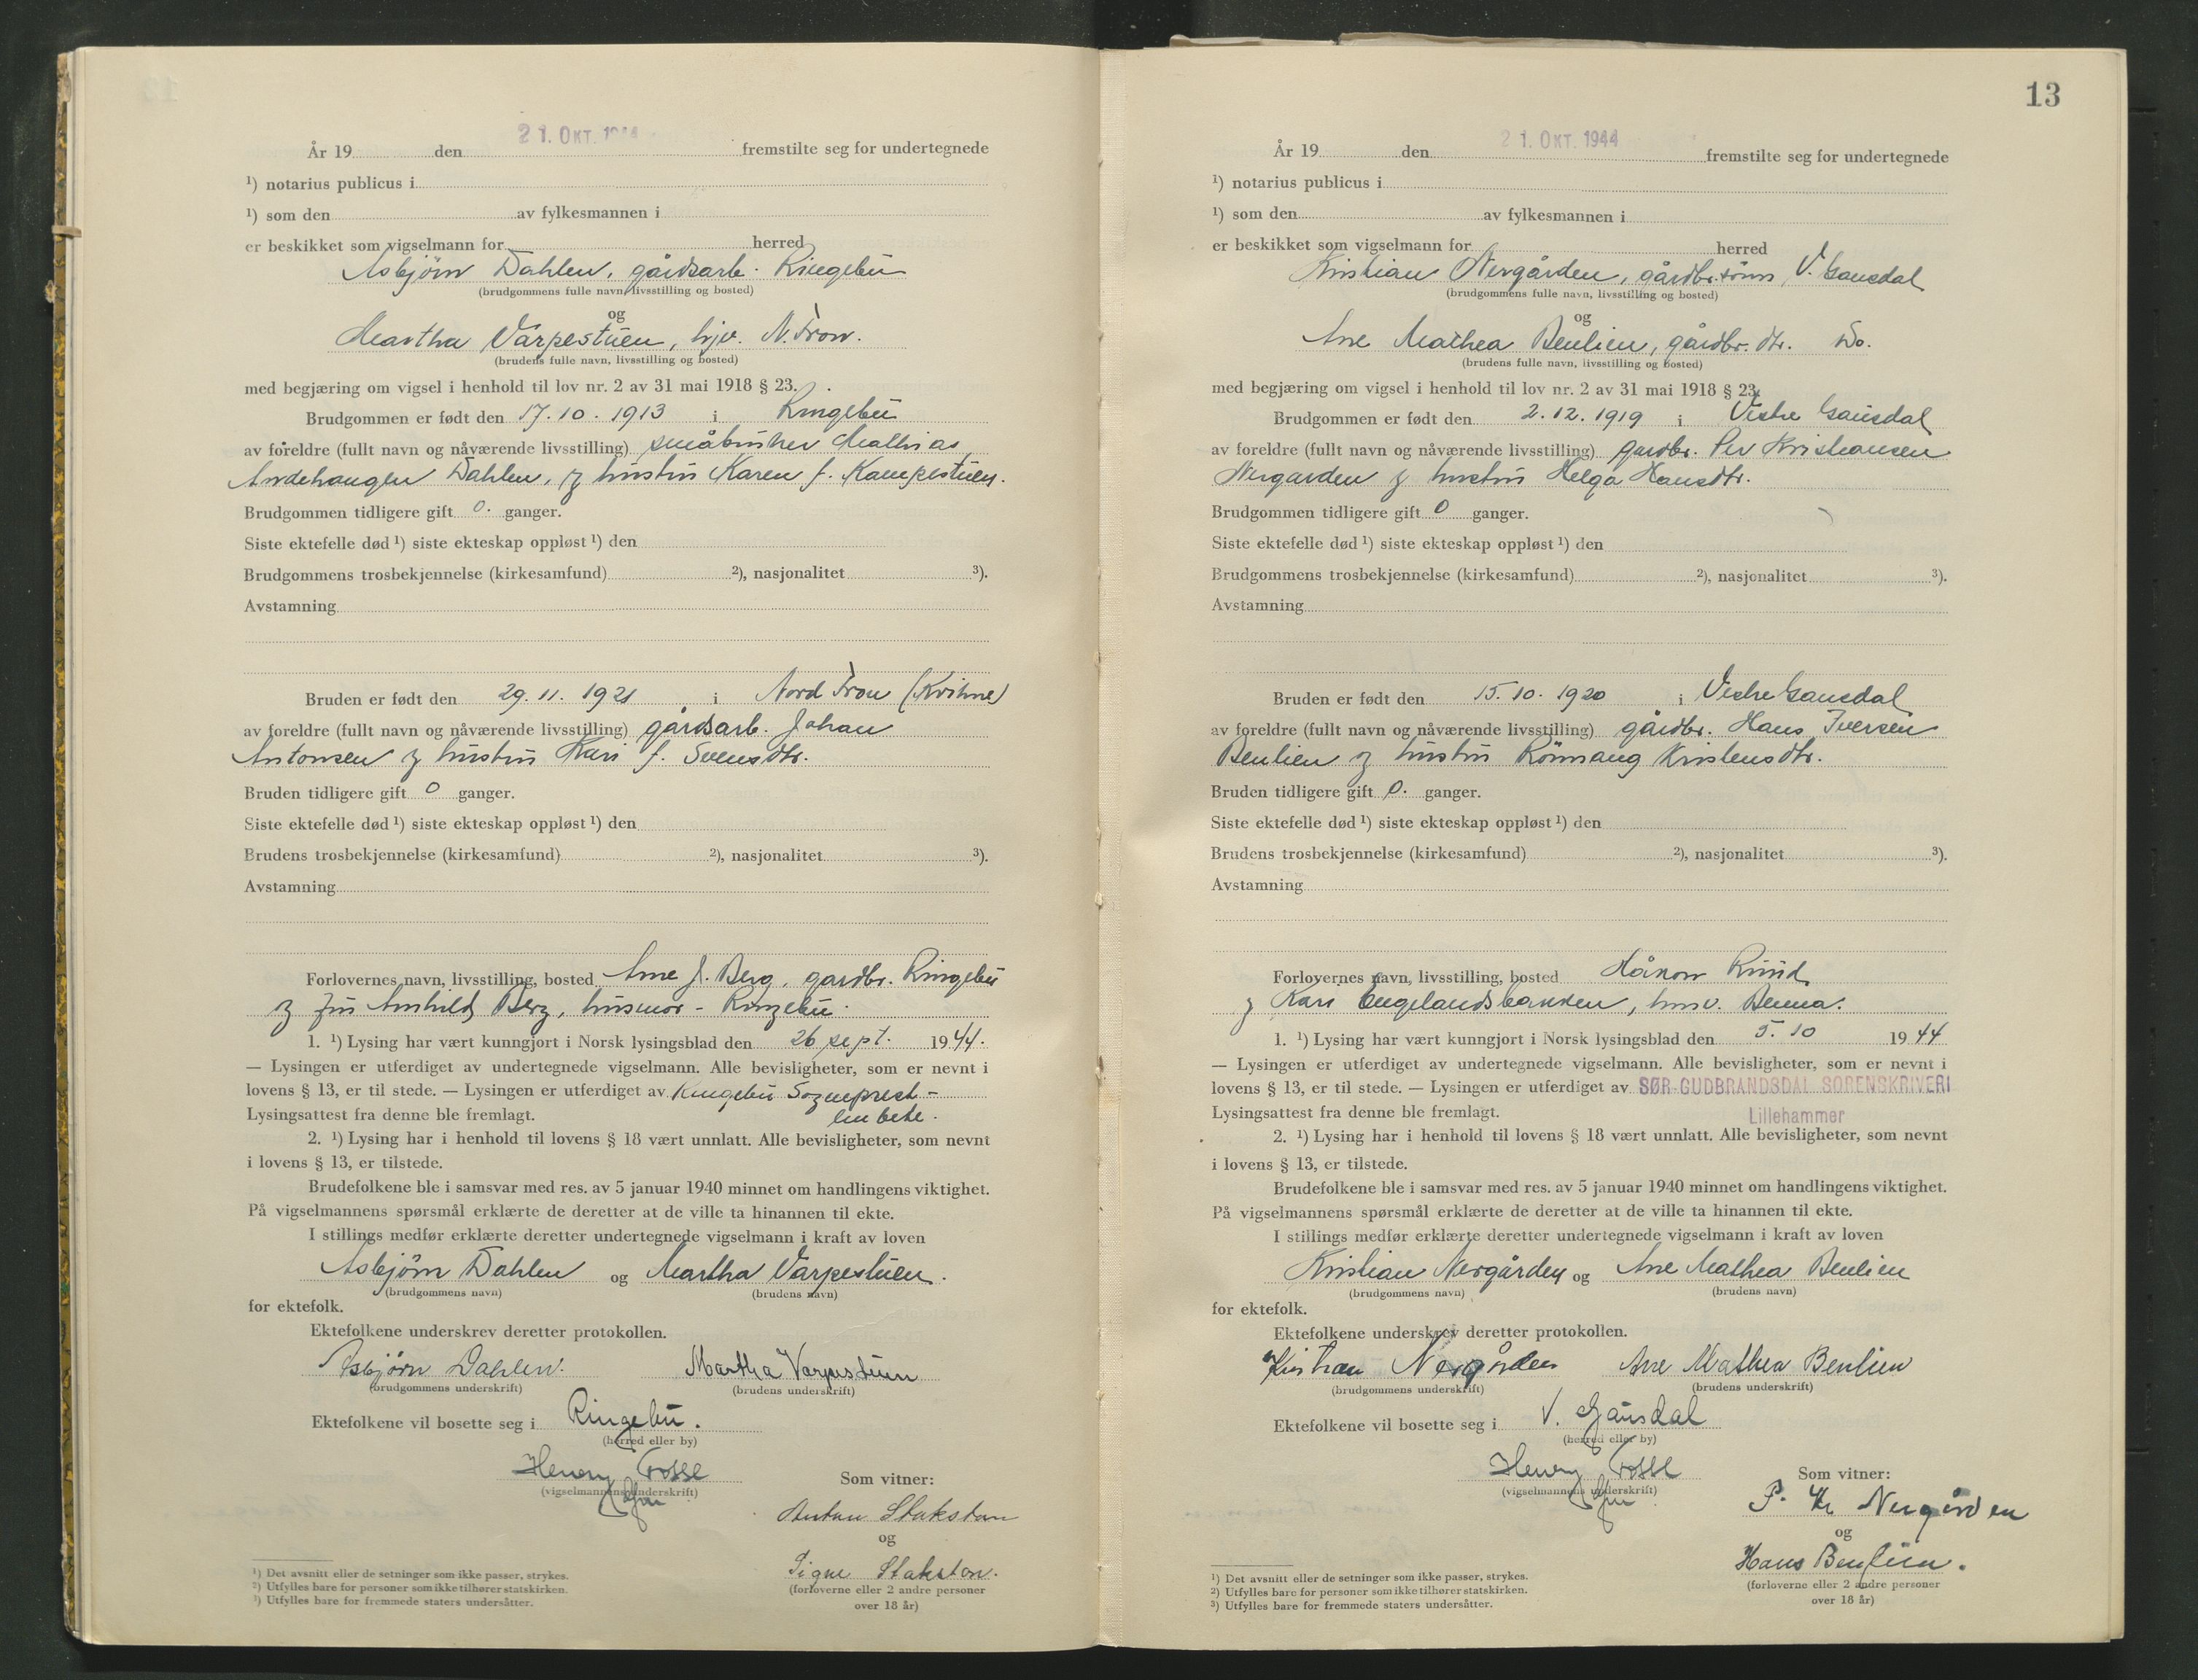 21. OKT. 1944
År 19 den fremstilte seg for undertegnede
¹) notarius publicus i
¹) som den av fylkesmannen i
er beskikket som vigselmann for herred
Asbjörn Dahlen, gårdsarb. Ringebu
(brudgommens fulle navn, livsstilling og bosted)
og
Martha Varpestuen, hjv. N. Fron.
(brudens fulle navn, livsstilling og bosted)
med begjæring om vigsel i henhold til lov nr. 2 av 31 mai 1918 § 23.
Brudgommen er født den 17.10.1913 i Ringebu
av foreldre (fullt navn og nåværende livsstilling) småbruker Mathias
Dahlen, og hustru Karen f. Kampestuen.
Brudgommen tidligere gift 0. ganger.
Siste ektefelle død ¹) siste ekteskap oppløst ¹) den
Brudgommens trosbekjennelse (kirkesamfund) ²), nasjonalitet ³).
Avstamning
Bruden er født den 29.11.1921 i Nord Fron (Kvikne)
av foreldre (fullt navn og nåværende livsstilling) gårdsarb. Johan
Antonsen og hustru Kari f. Svensdtr.
Bruden tidligere gift 0 ganger.
Siste ektefelle død ¹) siste ekteskap oppløst ¹) den
Brudens trosbekjennelse (kirkesamfund) ²), nasjonalitet ³).
Avstamning
Forlovernes navn, livsstilling, bosted Arne J. Berg, gardbr. Ringebu
og fru Berg, husmor - Ringebu.
1. ¹) Lysing har vært kunngjort i Norsk lysingsblad den 26 sept. 1944.
— Lysingen er utferdiget av undertegnede vigselmann. Alle bevisligheter, som er nevnt i
lovens § 13, er til stede. — Lysingen er utferdiget av Ringebu Sogneprest-
Lysingsattest fra denne ble fremlagt. embete.
2. ¹) Lysing har i henhold til lovens § 18 vært unnlatt. Alle bevisligheter, som nevnt
i lovens § 13, er tilstede.
Brudefolkene ble i samsvar med res. av 5 januar 1940 minnet om handlingens viktighet.
På vigselmannens spørsmål erklærte de deretter at de ville ta hinannen til ekte.
I stillings medfør erklærte deretter undertegnede vigselmann i kraft av loven
Asbjörn Dahlen og Martha Varpestuen.
(brudgommens navn) (brudens navn)
for ektefolk.
Ektefolkene underskrev deretter protokollen.
Asbjörn Dahlen. Martha Varpestuen
(brudgommens underskrift) (brudens underskrift)
Ektefolkene vil bosette seg i Ringebu.
(herred eller by)
Henry Fosse
(vigselmannens underskrift)
Som vitner:
Anton Stakston
og
Signe Stakston.
(forloverne eller 2 andre personer
over 18 år)
¹) Det avsnitt eller de setninger som ikke passer, strykes.
²) Utfylles bare for personer som ikke tilhører statskirken.
³) Utfylles bare for fremmede staters undersåtter.
13
21. OKT. 1944
År 19 den fremstilte seg for undertegnede
¹) notarius publicus i
¹) som den av fylkesmannen i
er beskikket som vigselmann for herred
Kristian Nergården, gårdbr.sönn, V. Gausdal
(brudgommens fulle navn, livsstilling og bosted)
og
Ane Mathea Benlien, gårdbr. dtr. Do.
(brudens fulle navn, livsstilling og bosted)
med begjæring om vigsel i henhold til lov nr. 2 av 31 mai 1918 § 23.
Brudgommen er født den 2.12.1919 i Vestre Gausdal
av foreldre (fullt navn og nåværende livsstilling) gardbr. Per Kristiansen
Nergarden og hustru Helga Hansdtr.
Brudgommen tidligere gift 0 ganger.
Siste ektefelle død ¹) siste ekteskap oppløst ¹) den
Brudgommens trosbekjennelse (kirkesamfund) ²), nasjonalitet ³).
Avstamning
Bruden er født den 15.10.1920 i Vestre Gausdal
av foreldre (fullt navn og nåværende livsstilling) gårdbr. Hans Iversen
Benlien og hustru Rönnaug Kristensdtr.
Bruden tidligere gift 0. ganger.
Siste ektefelle død ¹) siste ekteskap oppløst ¹) den
Brudens trosbekjennelse (kirkesamfund) ²), nasjonalitet ³).
Avstamning
Forlovernes navn, livsstilling, bosted Håkon Ruud
og Kari Engelandsbakken,
1. ¹) Lysing har vært kunngjort i Norsk lysingsblad den 5.10 1944
— Lysingen er utferdiget av undertegnede vigselmann. Alle bevisligheter, som er nevnt i
lovens § 13, er til stede. — Lysingen er utferdiget av SØR-GUDBRANDSDAL SORENSKRIVERI
Lysingsattest fra denne ble fremlagt. Lillehammer
2. ¹) Lysing har i henhold til lovens § 18 vært unnlatt. Alle bevisligheter, som nevnt
i lovens § 13, er tilstede.
Brudefolkene ble i samsvar med res. av 5 januar 1940 minnet om handlingens viktighet.
På vigselmannens spørsmål erklærte de deretter at de ville ta hinannen til ekte.
I stillings medfør erklærte deretter undertegnede vigselmann i kraft av loven
Kristian Nergården og Ane Mathea Benlien
(brudgommens navn) (brudens navn)
for ektefolk.
Ektefolkene underskrev deretter protokollen.
Kristian Nergården Ane Mathea Benlien
(brudgommens underskrift) (brudens underskrift)
Ektefolkene vil bosette seg i V. Gausdal
(herred eller by)
Henry Fosse
(vigselmannens underskrift)
Som vitner:
P. Kr Nergården
og
Hans Benlien.
(forloverne eller 2 andre personer
over 18 år)
¹) Det avsnitt eller de setninger som ikke passer, strykes.
²) Utfylles bare for personer som ikke tilhører statskirken.
³) Utfylles bare for fremmede staters undersåtter.